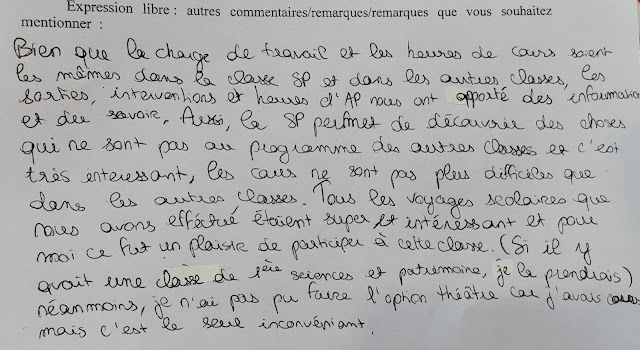 Expression libre : autres commentaires/remarques/remarques que vous souhaitez
mentionner :
Bien que la charge de travail et les heures de cours soient
les mêmes dans la classe SP et dans les autres classes, les
sorties, interventions et heures d'AP nous ont apporté des informations
et du savoir. Aussi, la SP permet de découvrir des choses
qui ne sont pas au programme des autres classes et c'est
très interessant, les cours ne sont pas plus difficiles que
dans les autres classes. Tous les voyages scolaires que
nous avons efféctué étaient super et intéressant et pour
moi ce fut un plaisir de participer à cette classe. (Si il y
avait une classe de 1ère sciences et patrimoine, je la prendrais)
néanmoins, je n'ai pas pu faire l'option théâtre car j'avais cours
mais c'est le seul inconvéniant.